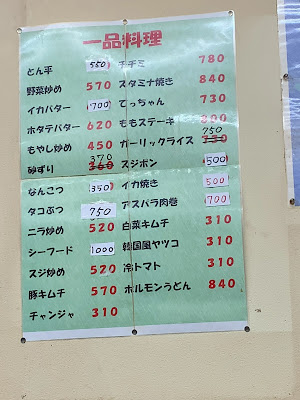 一品料理
とん平 550
野菜炒め 570
イカバター 700
ホタテバター 620
もやし炒め 450
砂ずり 360 370
なんこつ 350
タコぶつ 750
ニラ炒め 520
シーフード 1000
スジ炒め 520
豚キムチ 570
チャンジャ 310
チヂミ 780
スタミナ焼き 840
てっちゃん 730
ももステーキ 800
ガーリックライス 750
スジポン 500
イカ焼き 500
アスパラ肉巻 700
白菜キムチ 310
韓国風ヤツコ 310
冷トマト 310
ホルモンうどん 840